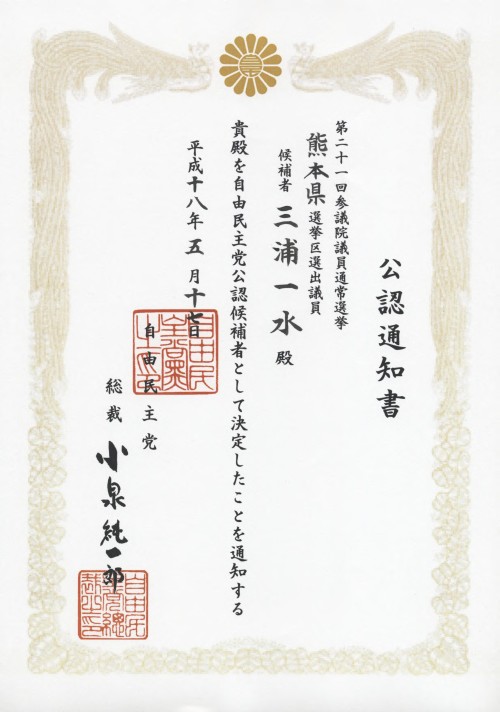 公認通知書
第二十一回参議院議員通常選挙
熊本県選挙区選出議員
候補者 三浦一水 殿
貴殿を自由民主党公認候補者として決定したことを通知する
平成十八年五月十七日
自由民主党
総裁 小泉純一郎